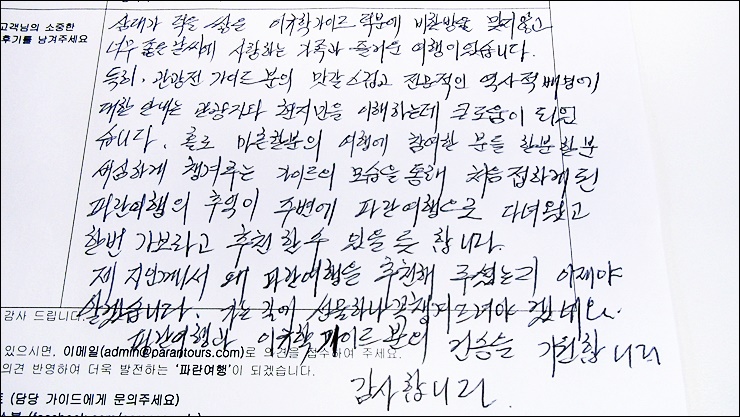 고객님의 소중한
후기를 남겨주세요
삼대가 덕을 쌓은 이규학가이드 덕분에 비한방울 맞지않고
너무 좋은 날씨에 사랑하는 가족과 즐거운 여행이 었습니다.
특히, 관광전 가이드 분의 맛갈스럽고 전문적인 역사적 배경에
대한 안내는 관광지와 현지인을 이해하는데 큰도움이 되었
습니다. 홀로 마흔한분의 여행에 참여한 분을 한분한분
세심하게 챙겨주는 가이드의 모습을 통해 처음 접하게된
파란여행의 추억이 주변에 파란여행으로 다녀왔고
한번 가보라고 추천할수 있을듯 합니다.
제 지인께서 왜 파란여행을 추천해 주셨는지 이제야
알겠습니다. 가는 길에 선물하나 꼭챙겨드려야 겠네요.
감사 드립니다.
파란여행과 이규학가이드 분의 건승을 기원합니다
있으시면, 이메일(admin@parantours.com)로 의견을 접수하여 주세요.
의견 반영하여 더욱 발전하는 '파란여행'이 되겠습니다.
감사합니다.
(담당 가이드에게 문의주세요)